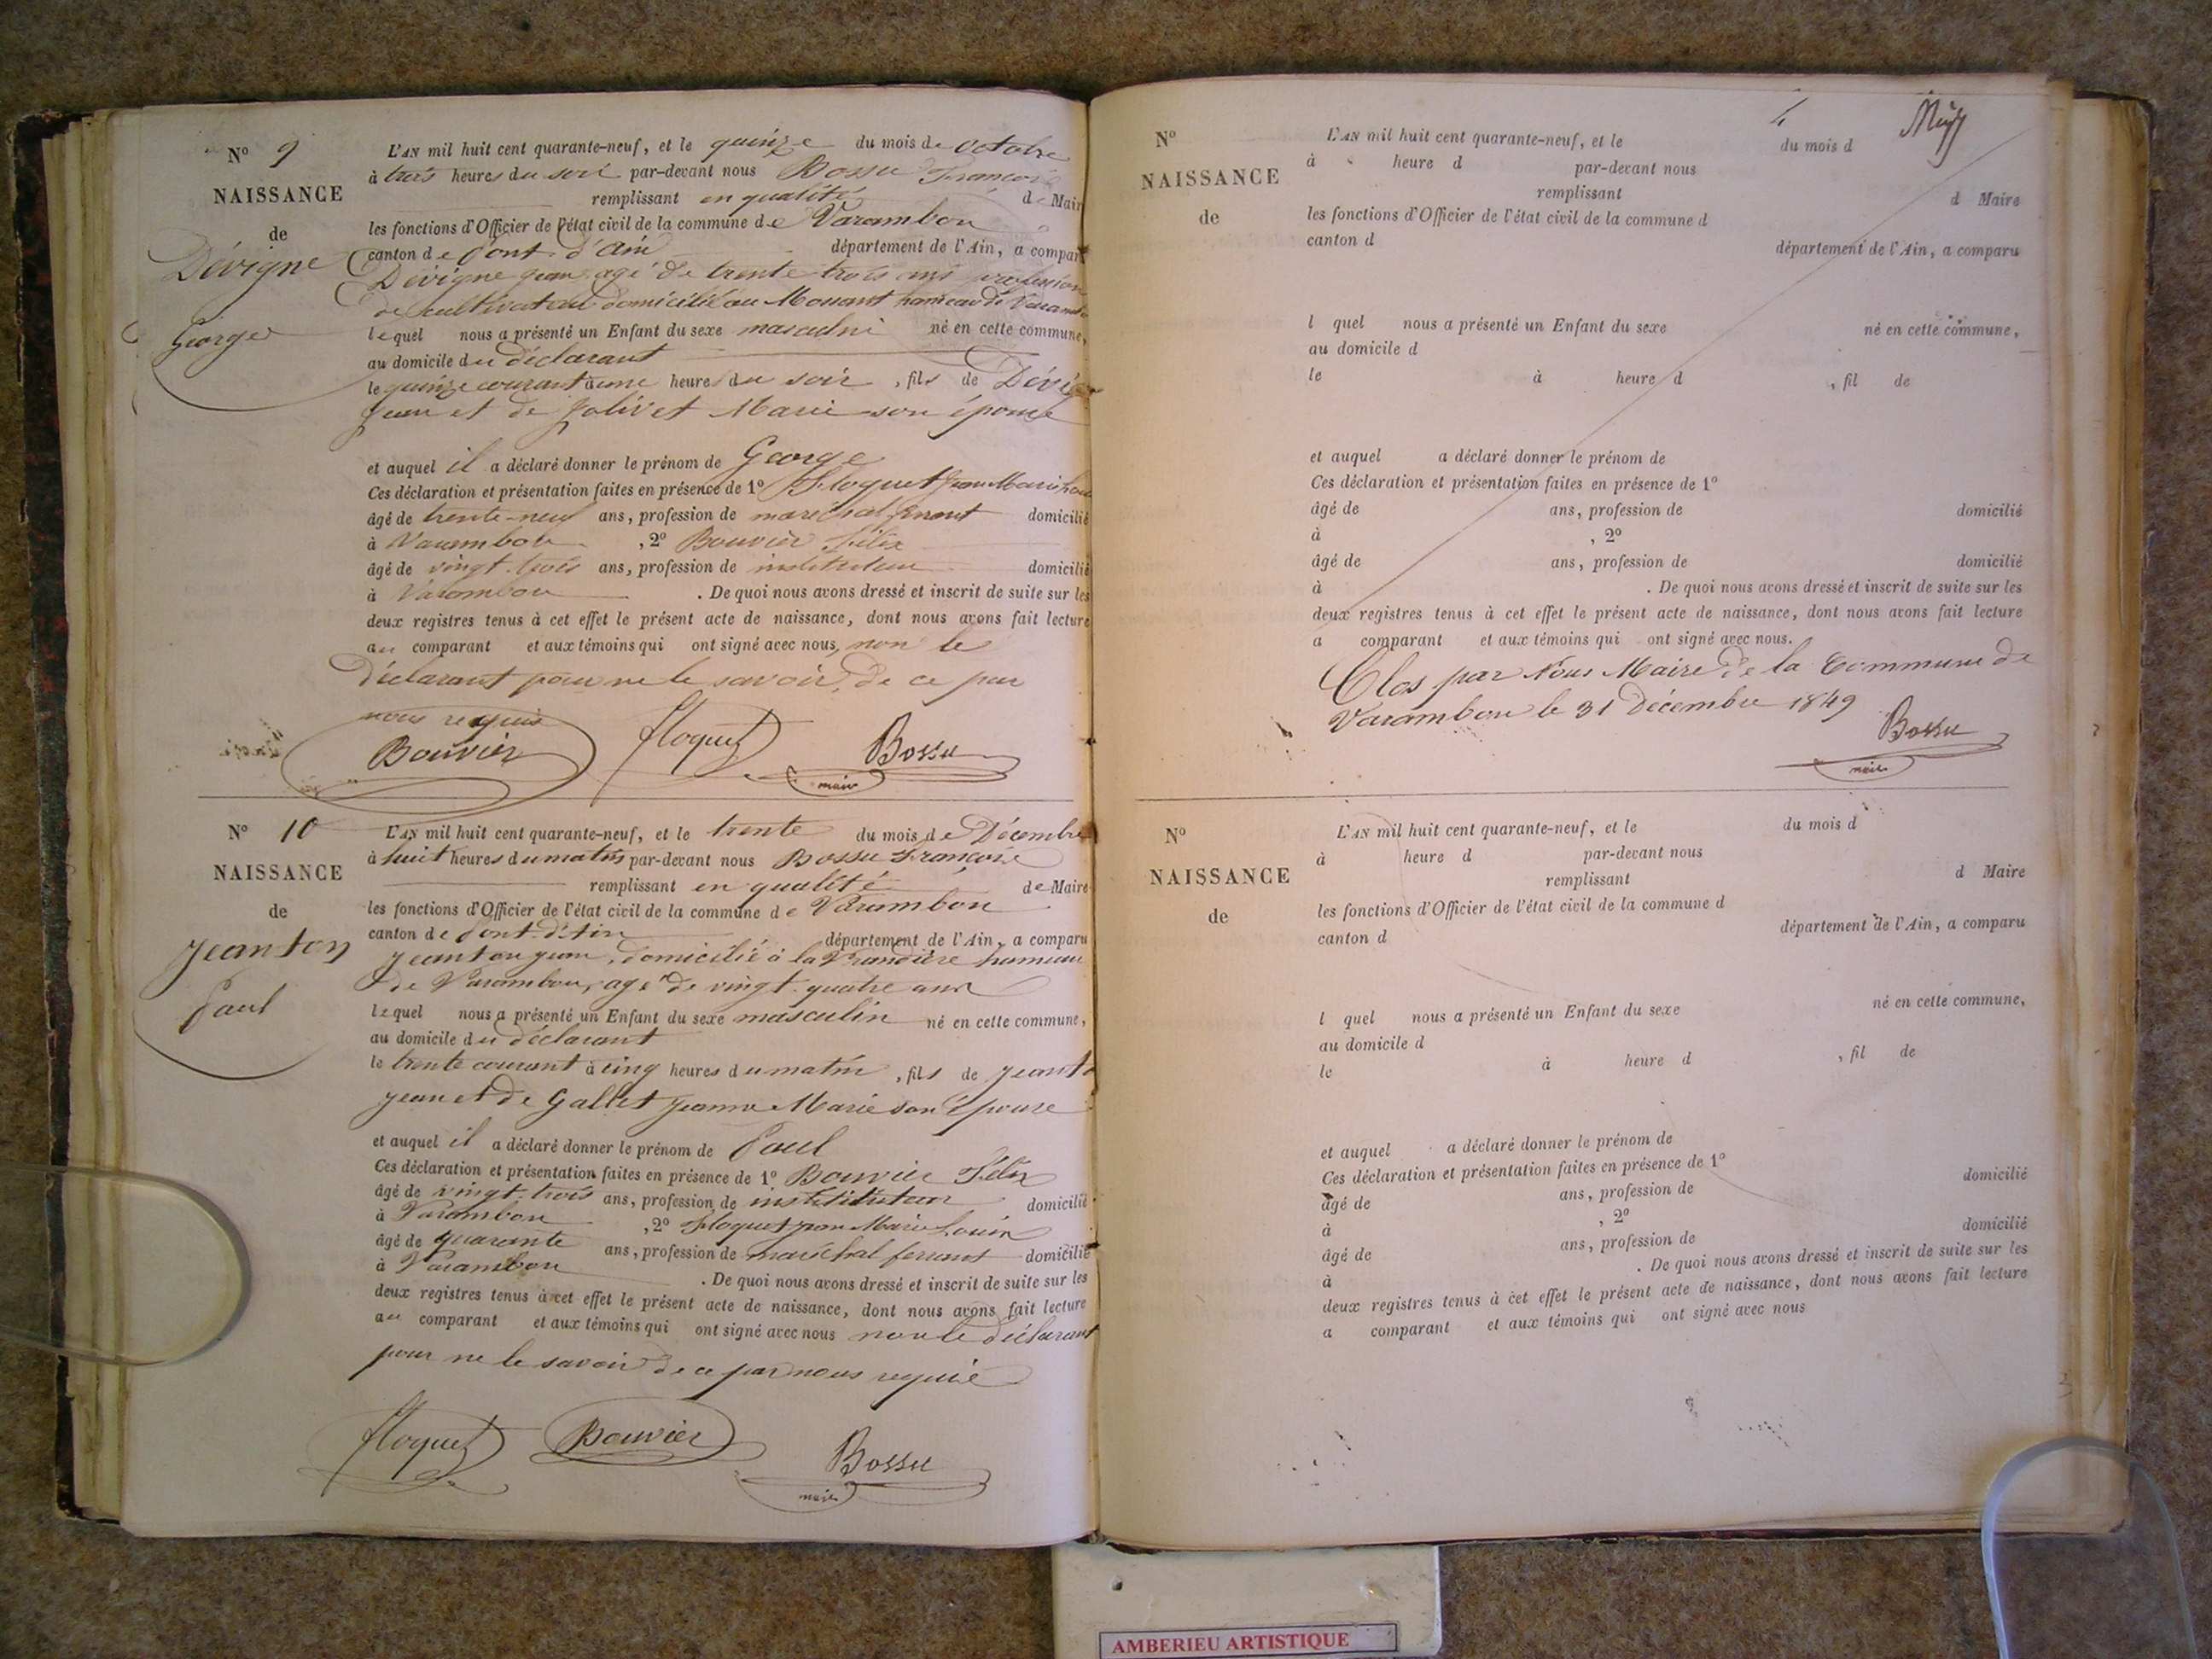 N° 9
NAISSANCE
de
Dévigne
George
L'AN mil huit cent quarante-neuf, et le quinze du mois de octobre
à trois heures du soir par-devant nous Bossu François
remplissant en qualité de Maire
les fonctions d'Officier de l'état civil de la commune de Varambon
canton de Pont d'Ain département de l'Ain, a comparu
Dévigne jean agé de trente trois ans profession
de cultivateur domicilié au Mossant hameau de Varambon
lequel nous a présenté un Enfant du sexe masculin né en cette commune,
au domicile du déclarant
le quinze courant à une heure du soir, fils de Dévigne
jean et de Jolivet Marie son épouse
et auquel il a déclaré donner le prénom de George
Ces déclaration et présentation faites en présence de 1° Floquet jean Marie
âgé de trente-neuf ans, profession de maréchal ferrant domicilié
à Varambon, 2° Bouvier Félix
âgé de vingt-trois ans, profession de instituteur domicilié
à Varambon. De quoi nous avons dressé et inscrit de suite sur les
deux registres tenus à cet effet le présent acte de naissance, dont nous avons fait lecture
au comparant et aux témoins qui ont signé avec nous, non le
Déclarant pour ne le savoir, de ce par
nous requis
Bouvier Floquet Bossu
maire
N° 10
NAISSANCE
de
Jeanton
Paul
L'AN mil huit cent quarante-neuf, et le trente du mois de Décembre
à huit heures du matin par-devant nous Bossu François
remplissant en qualité de Maire
les fonctions d'Officier de l'état civil de la commune de Varambon
canton de Pont d'Ain département de l'Ain, a comparu
Jeanton jean, domicilié à la Brandière hameau
de Varambon, agé de vingt quatre ans
lequel nous a présenté un Enfant du sexe masculin né en cette commune,
au domicile du déclarant
le trente courant à cinq heures du matin, fils de jeanton
jean et de Gallet jeanne Marie son épouse
et auquel il a déclaré donner le prénom de Paul
Ces déclaration et présentation faites en présence de 1° Bouvier Félix
âgé de vingt-trois ans, profession de instituteur domicilié
à Varambon, 2° Floquet jean Marie Louis
âgé de quarante ans, profession de maréchal ferrant domicilié
à Varambon. De quoi nous avons dressé et inscrit de suite sur les
deux registres tenus à cet effet le présent acte de naissance, dont nous avons fait lecture
au comparant et aux témoins qui ont signé avec nous non le déclarant
pour ne le savoir de ce par nous requis
Floquet Bouvier Bossu
maire
N°
NAISSANCE
de
L'AN mil huit cent quarante-neuf, et le du mois d
à heure d par-devant nous
remplissant d Maire
les fonctions d'Officier de l'état civil de la commune d
canton d département de l'Ain, a comparu
l quel nous a présenté un Enfant du sexe né en cette commune,
au domicile d
le à heure d , fil de
et auquel a déclaré donner le prénom de
Ces déclaration et présentation faites en présence de 1°
âgé de ans, profession de domicilié
à , 2°
âgé de ans, profession de domicilié
à . De quoi nous avons dressé et inscrit de suite sur les
deux registres tenus à cet effet le présent acte de naissance, dont nous avons fait lecture
a comparant et aux témoins qui ont signé avec nous.
Clos par Nous Maire de la Commune de
Varambon le 31 Décembre 1849
Bossu
maire
N°
NAISSANCE
de
L'AN mil huit cent quarante-neuf, et le du mois d
à heure d par-devant nous
remplissant d Maire
les fonctions d'Officier de l'état civil de la commune d
canton d département de l'Ain, a comparu
l quel nous a présenté un Enfant du sexe né en cette commune,
au domicile d
le à heure d , fil de
et auquel a déclaré donner le prénom de
Ces déclaration et présentation faites en présence de 1°
âgé de ans, profession de domicilié
à , 2°
âgé de ans, profession de domicilié
à . De quoi nous avons dressé et inscrit de suite sur les
deux registres tenus à cet effet le présent acte de naissance, dont nous avons fait lecture
a comparant et aux témoins qui ont signé avec nous
AMBERIEU ARTISTIQUE